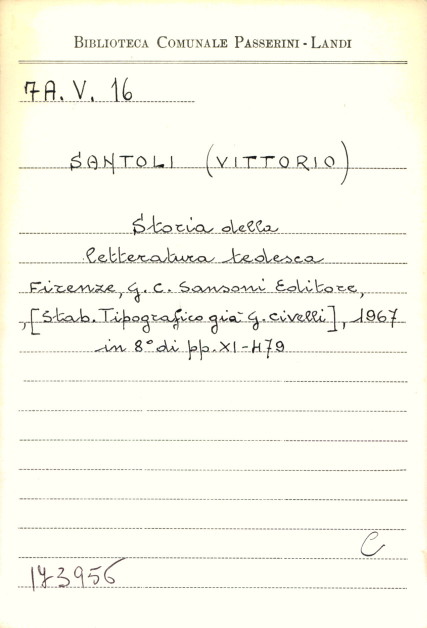 BIBLIOTECA COMUNALE PASSERINI - LANDI
7A. V. 16
SANTOLI (VITTORIO)
Storia della
letteratura tedesca
Firenze, G. C. Sansoni Editore,
,[Stab. Tipografico già G. Civelli], 1967
in 8° di pp. XI-479
C
173956